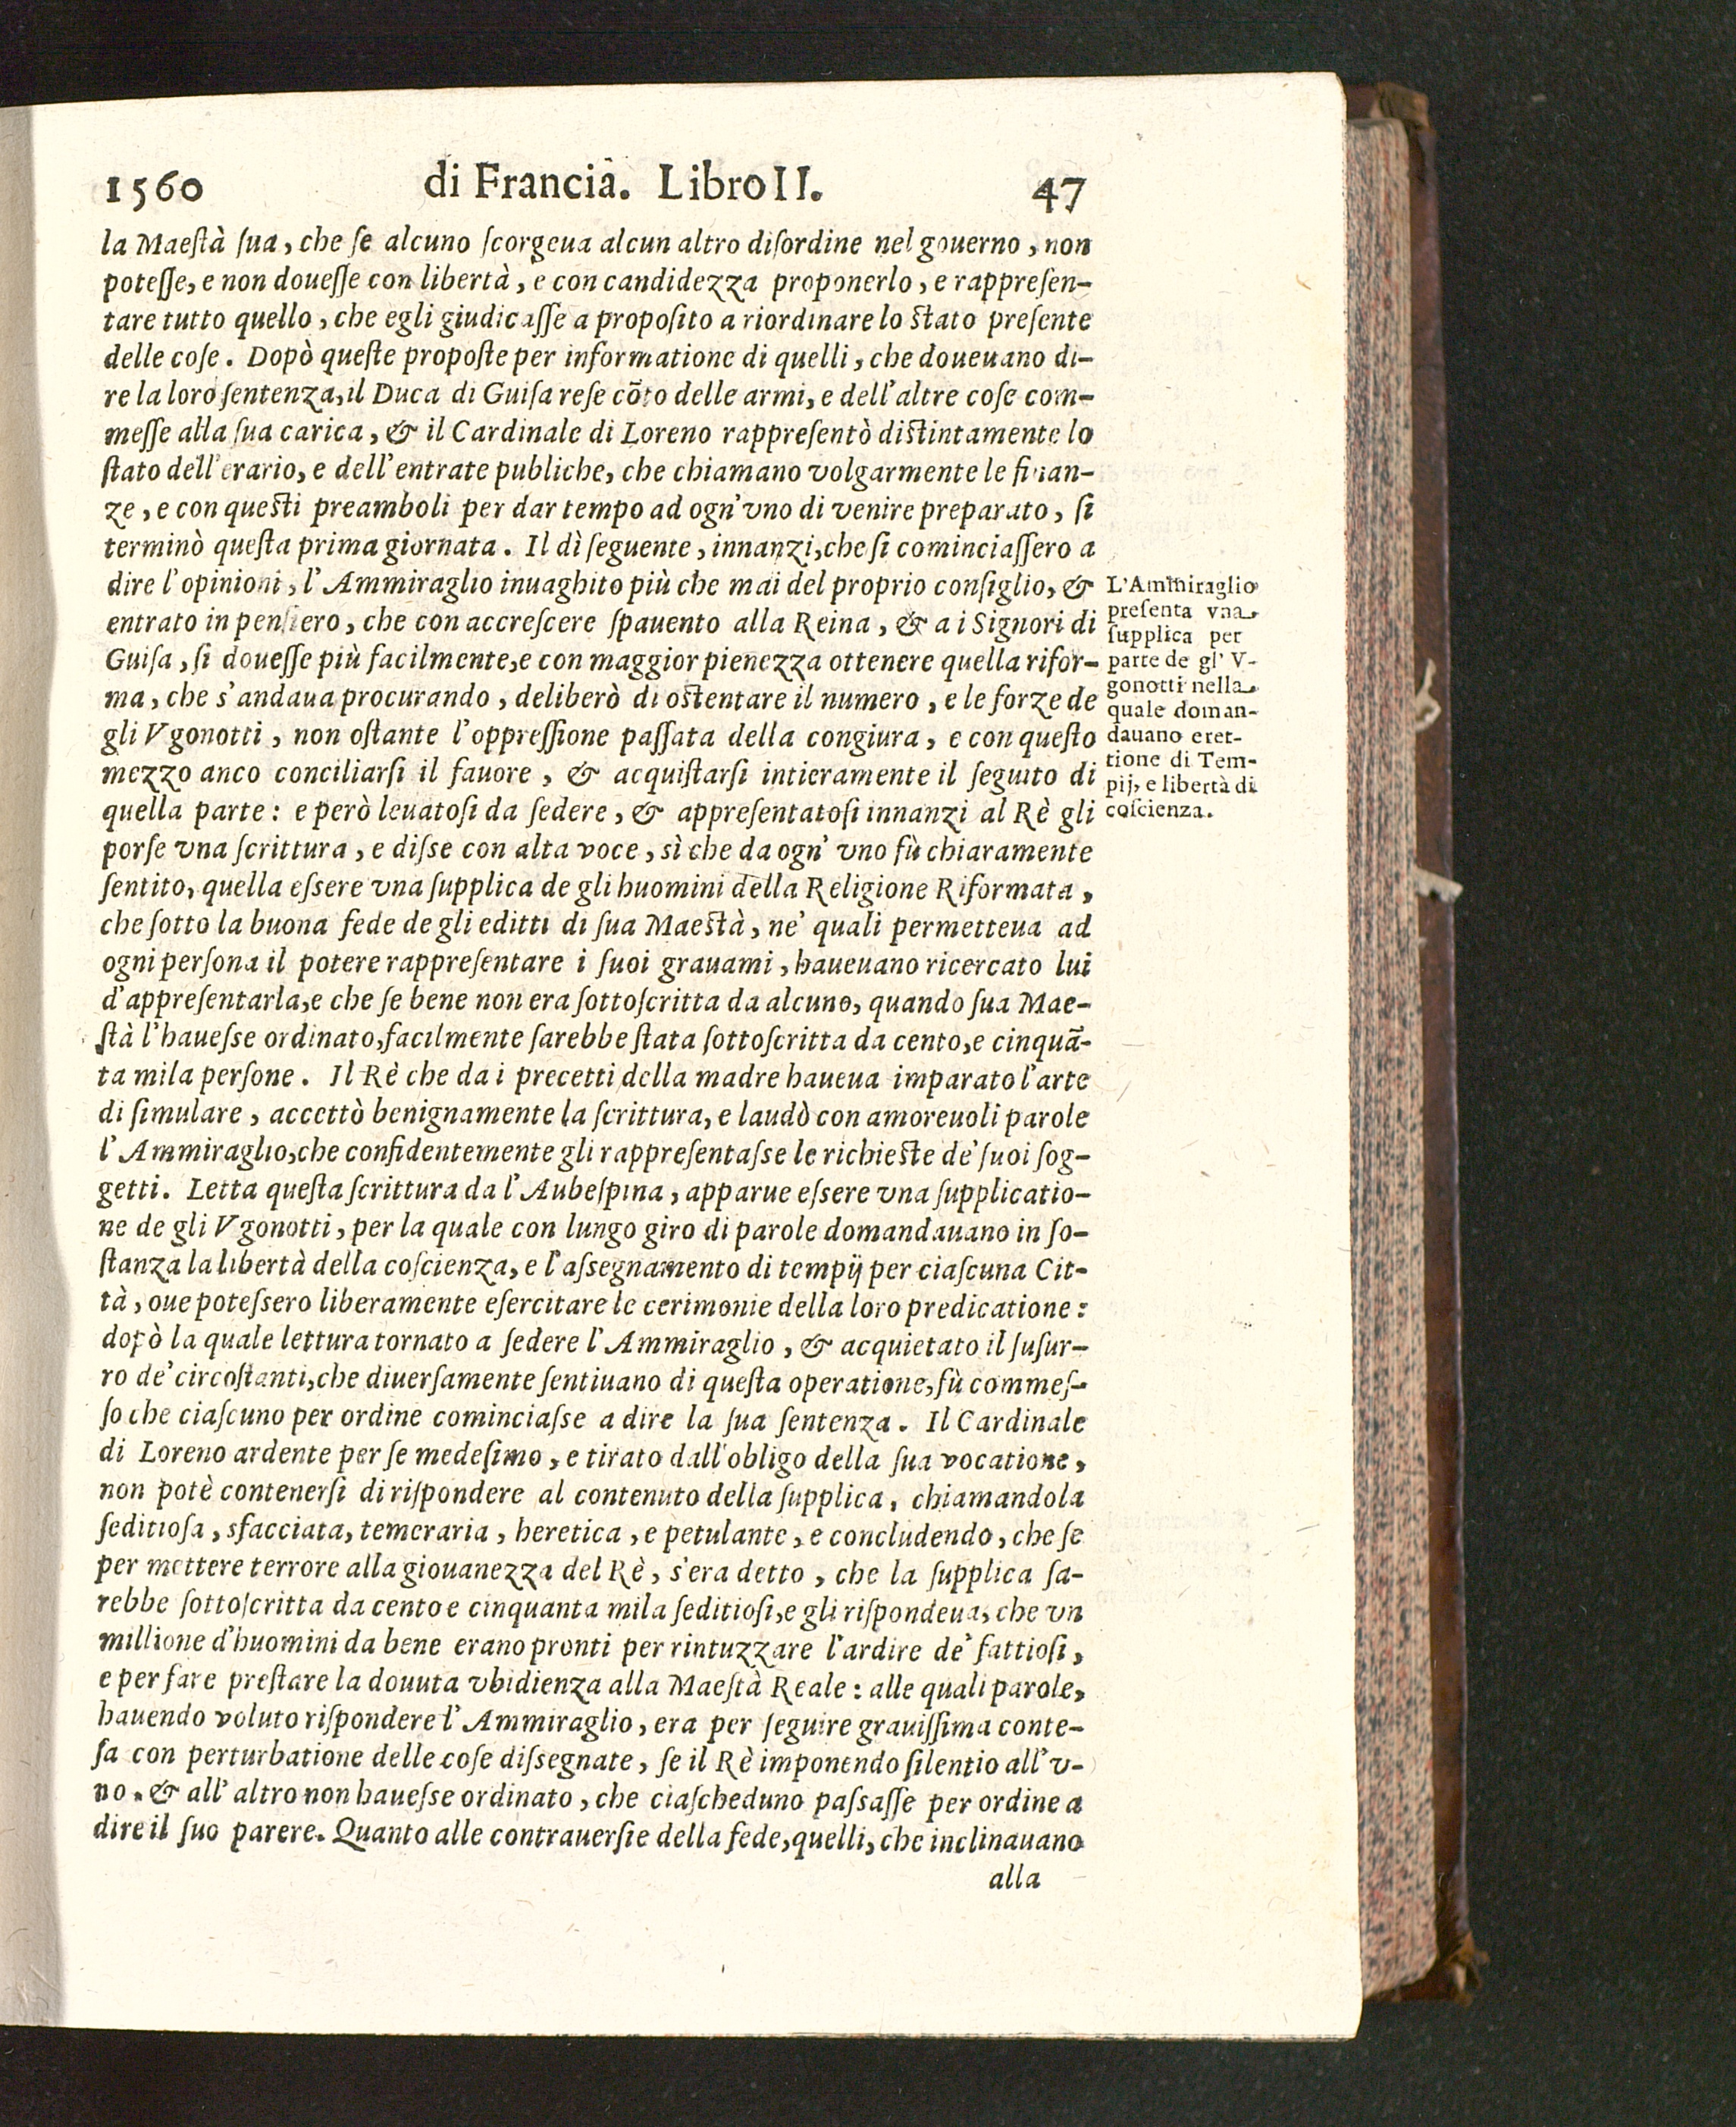 1560 di Francia. Libro II. 47
la Maeſtà ſua, che ſe alcuno ſcorgeua alcun altro diſordine nel gouerno, non
poteſſe, e non doueſſe con libertà, e con candidezza proponerlo, e rappreſen-
tare tutto quello, che egli giudicaſſe a propoſito a riordinare lo ſtato preſente
delle coſe. Dopò queſte propoſte per informatione di quelli, che doueuano di-
re la loro ſentenza, il Duca di Guiſa reſe cõto delle armi, e dell'altre coſe com-
meſſe alla ſua carica, & il Cardinale di Loreno rappreſentò diſtintamente lo
ſtato dell'erario, e dell'entrate publiche, che chiamano volgarmente le finan-
ze, e con queſti preamboli per dar tempo ad ogn'vno di venire preparato, ſi
terminò queſta prima giornata. Il dì ſeguente, innanzi, che ſi cominciaſſero a
dire l'opinioni, l'Ammiraglio inuaghito più che mai del proprio conſiglio, &
entrato in penſiero, che con accreſcere ſpauento alla Reina, & a i Signori di
Guiſa, ſi doueſſe più facilmente, e con maggior pienezza ottenere quella rifor-
ma, che s'andaua procurando, deliberò di oſtentare il numero, e le forze de
gli Vgonotti, non oſtante l'oppreſſione paſſata della congiura, e con queſto
mezzo anco conciliarſi il fauore, & acquiſtarſi intieramente il ſeguito di
quella parte: e però leuatoſi da ſedere, & appreſentatoſi innanzi al Rè gli
porſe vna ſcrittura, e diſse con alta voce, sì che da ogn' vno fù chiaramente
ſentito, quella eſsere vna ſupplica de gli huomini della Religione Riformata,
che ſotto la buona fede de gli editti di ſua Maeſtà, ne' quali permetteua ad
ogni perſona il potere rappreſentare i ſuoi grauami, haueuano ricercato lui
d'appreſentarla, e che ſe bene non era ſottoſcritta da alcuno, quando ſua Mae-
ſtà l'haueſse ordinato, facilmente ſarebbe ſtata ſottoſcritta da cento, e cinquã-
ta mila perſone. Il Rè che da i precetti della madre haueua imparato l'arte
di ſimulare, accettò benignamente la ſcrittura, e laudò con amoreuoli parole
l'Ammiraglio, che confidentemente gli rappreſentaſse le richieſte de' ſuoi ſog-
getti. Letta queſta ſcrittura da l'Aubeſpina, apparue eſsere vna ſupplicatio-
ne de gli Vgonotti, per la quale con lungo giro di parole domandauano in ſo-
ſtanza la libertà della coſcienza, e l'aſsegnamento di tempij per ciaſcuna Cit-
tà, oue poteſsero liberamente eſercitare le cerimonie della loro predicatione:
dopò la quale lettura tornato a ſedere l'Ammiraglio, & acquietato il ſuſur-
ro de' circoſtanti, che diuerſamente ſentiuano di queſta operatione, fù commeſ-
ſo che ciaſcuno per ordine cominciaſse a dire la ſua ſentenza. Il Cardinale
di Loreno ardente per ſe medeſimo, e tirato dall'obligo della ſua vocatione,
non potè contenerſi di riſpondere al contenuto della ſupplica, chiamandola
ſeditioſa, sfacciata, temeraria, heretica, e petulante, e concludendo, che ſe
per mettere terrore alla giouanezza del Rè, s'era detto, che la ſupplica ſa-
rebbe ſottoſcritta da cento e cinquanta mila ſeditioſi, e gli riſpondeua, che vn
millione d'huomini da bene erano pronti per rintuzzare l'ardire de' fattioſi,
e per fare preſtare la douuta vbidienza alla Maeſtà Reale: alle quali parole,
hauendo voluto riſpondere l'Ammiraglio, era per ſeguire grauiſſima conte-
ſa con perturbatione delle coſe diſsegnate, ſe il Rè imponendo ſilentio all'v-
no, & all'altro non haueſse ordinato, che ciaſcheduno paſsaſſe per ordine a
dire il ſuo parere. Quanto alle contrauerſie della fede, quelli, che inclinauano
alla
L'Ammiraglio
preſenta vna
ſupplica per
parte de gl' V-
gonotti nella
quale doman-
dauano eret-
tione di Tem-
pij, e libertà di
coſcienza.